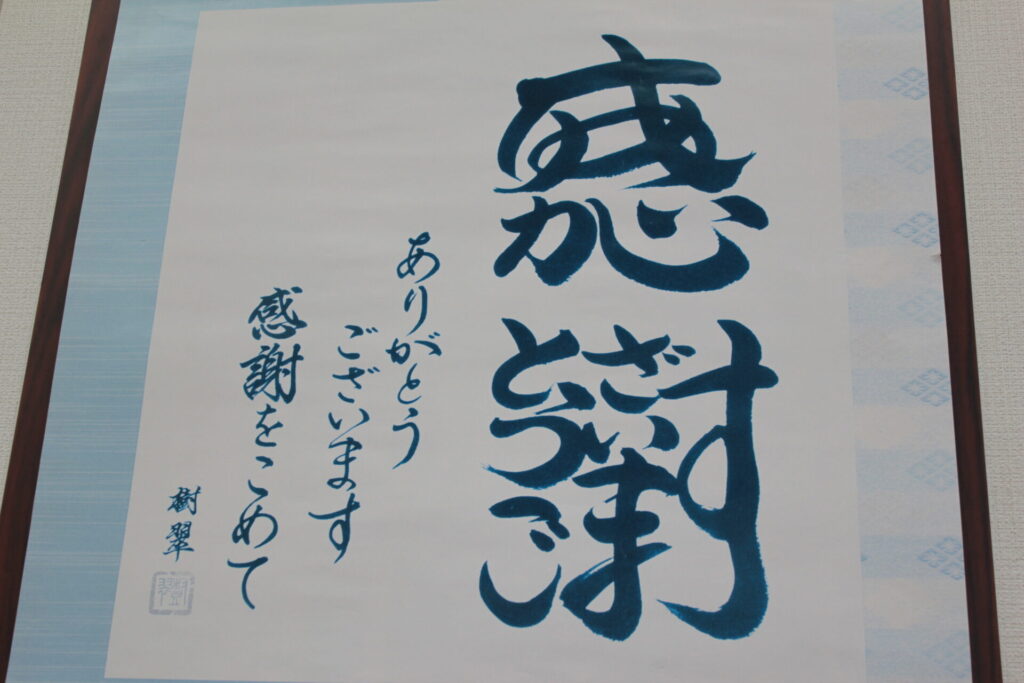 感謝
ありがとう
ございます
感謝をこめて
樹翠